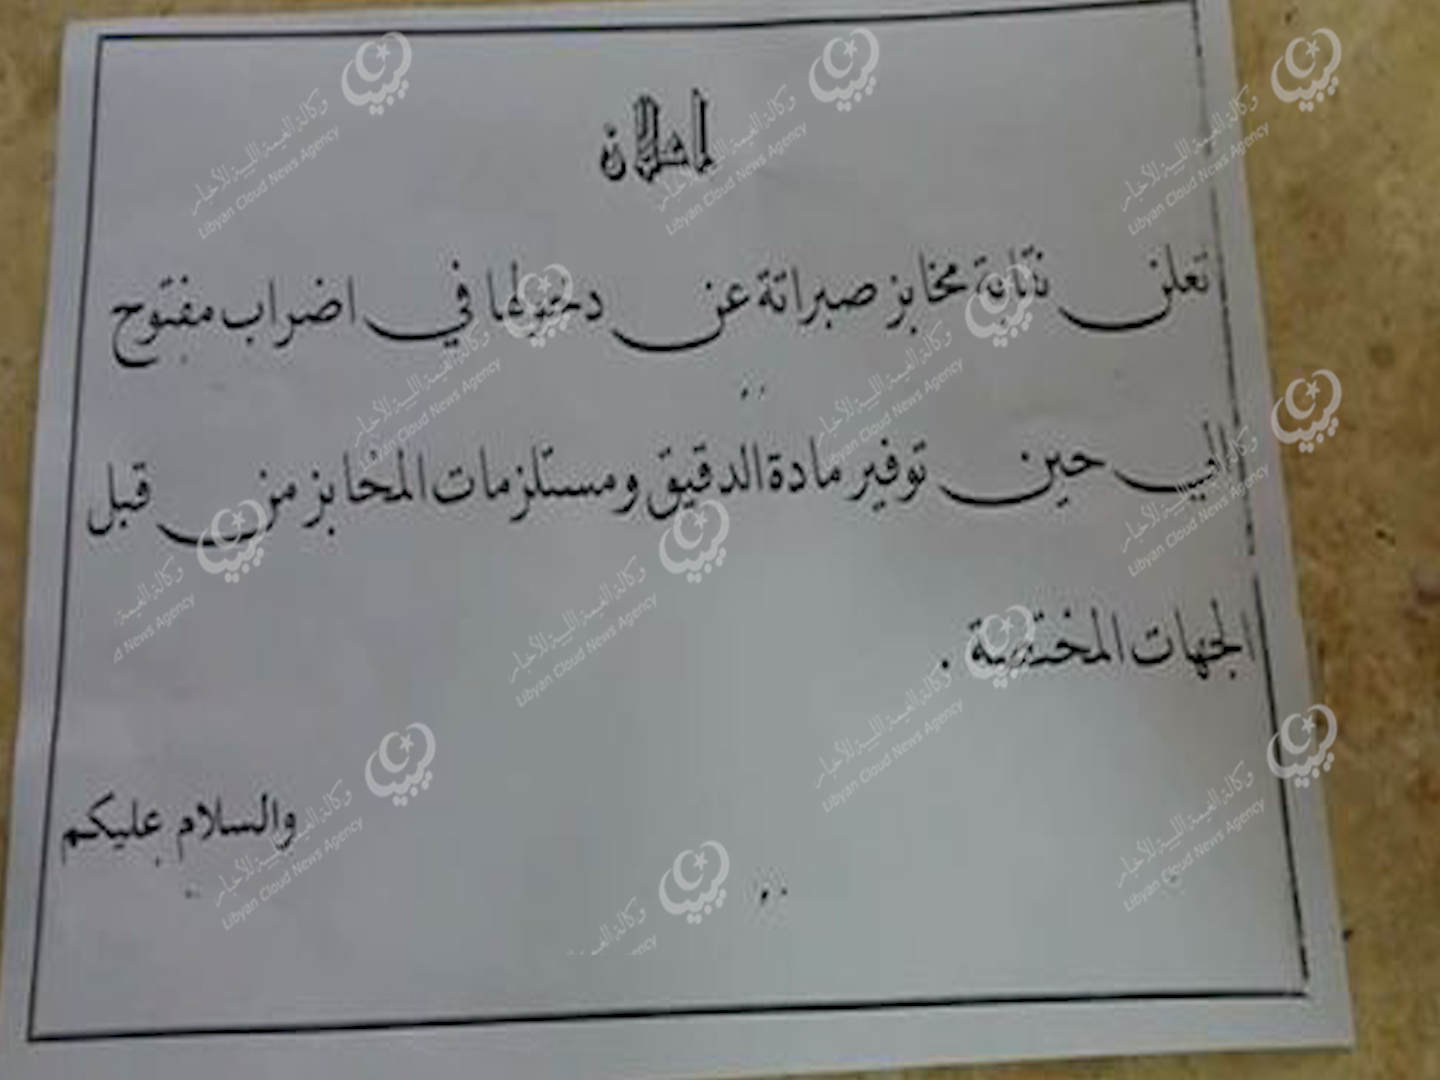 اعلان
تعلن نقابة مخابز صبراتة عن دخولها في اضراب مفتوح
الي حين توفير مادة الدقيق ومستلزمات المخابز من قبل
الجهات المختصة .
والسلام عليكم
وكالة الغيمة الليبية للأخبار
Libyan Cloud News Agency